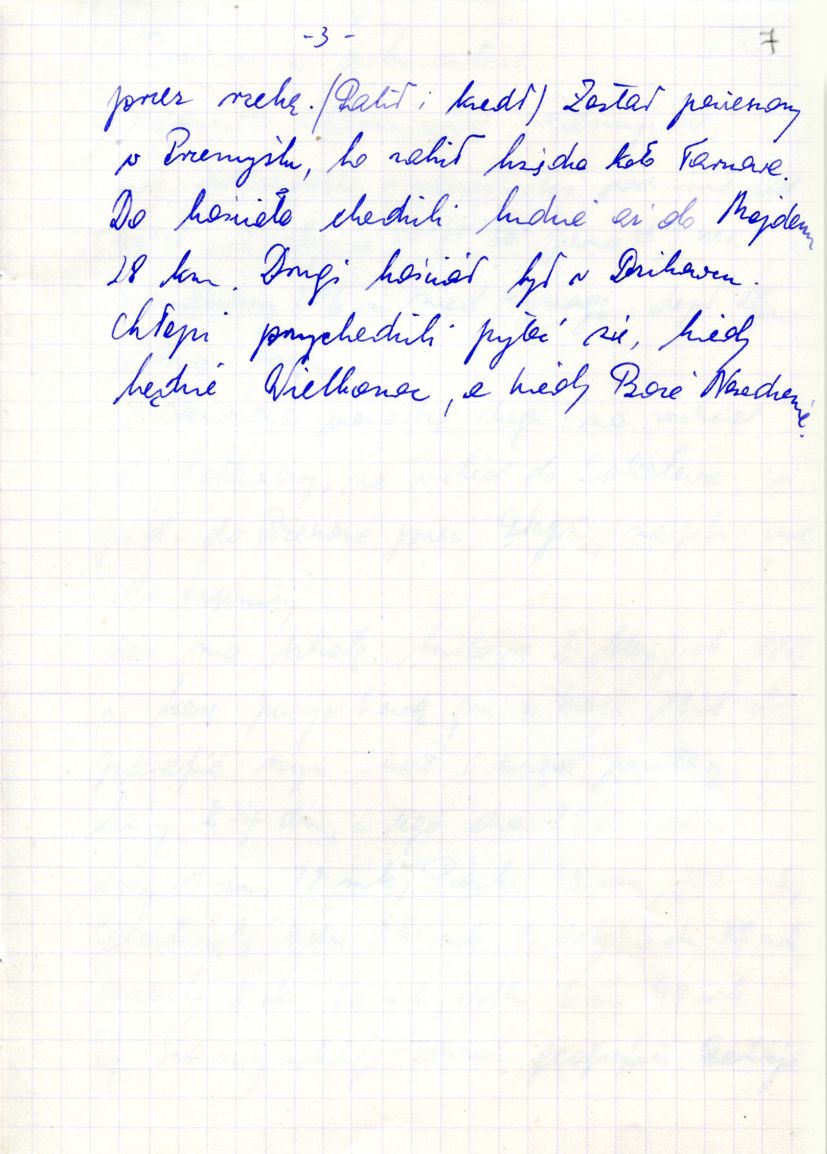 - 3 -
7
przez rzekę. (Palił i kradł) Został powieszony
w Przemyślu, bo zabił księdza koło Tarnowa.
Do kościoła chodzili ludzie aż do Majdanu
28 km. Drugi kościół był w Dzikowcu.
Chłopi przychodzili pytać się, kiedy
będzie Wielkanoc, a kiedy Boże Narodzenie.